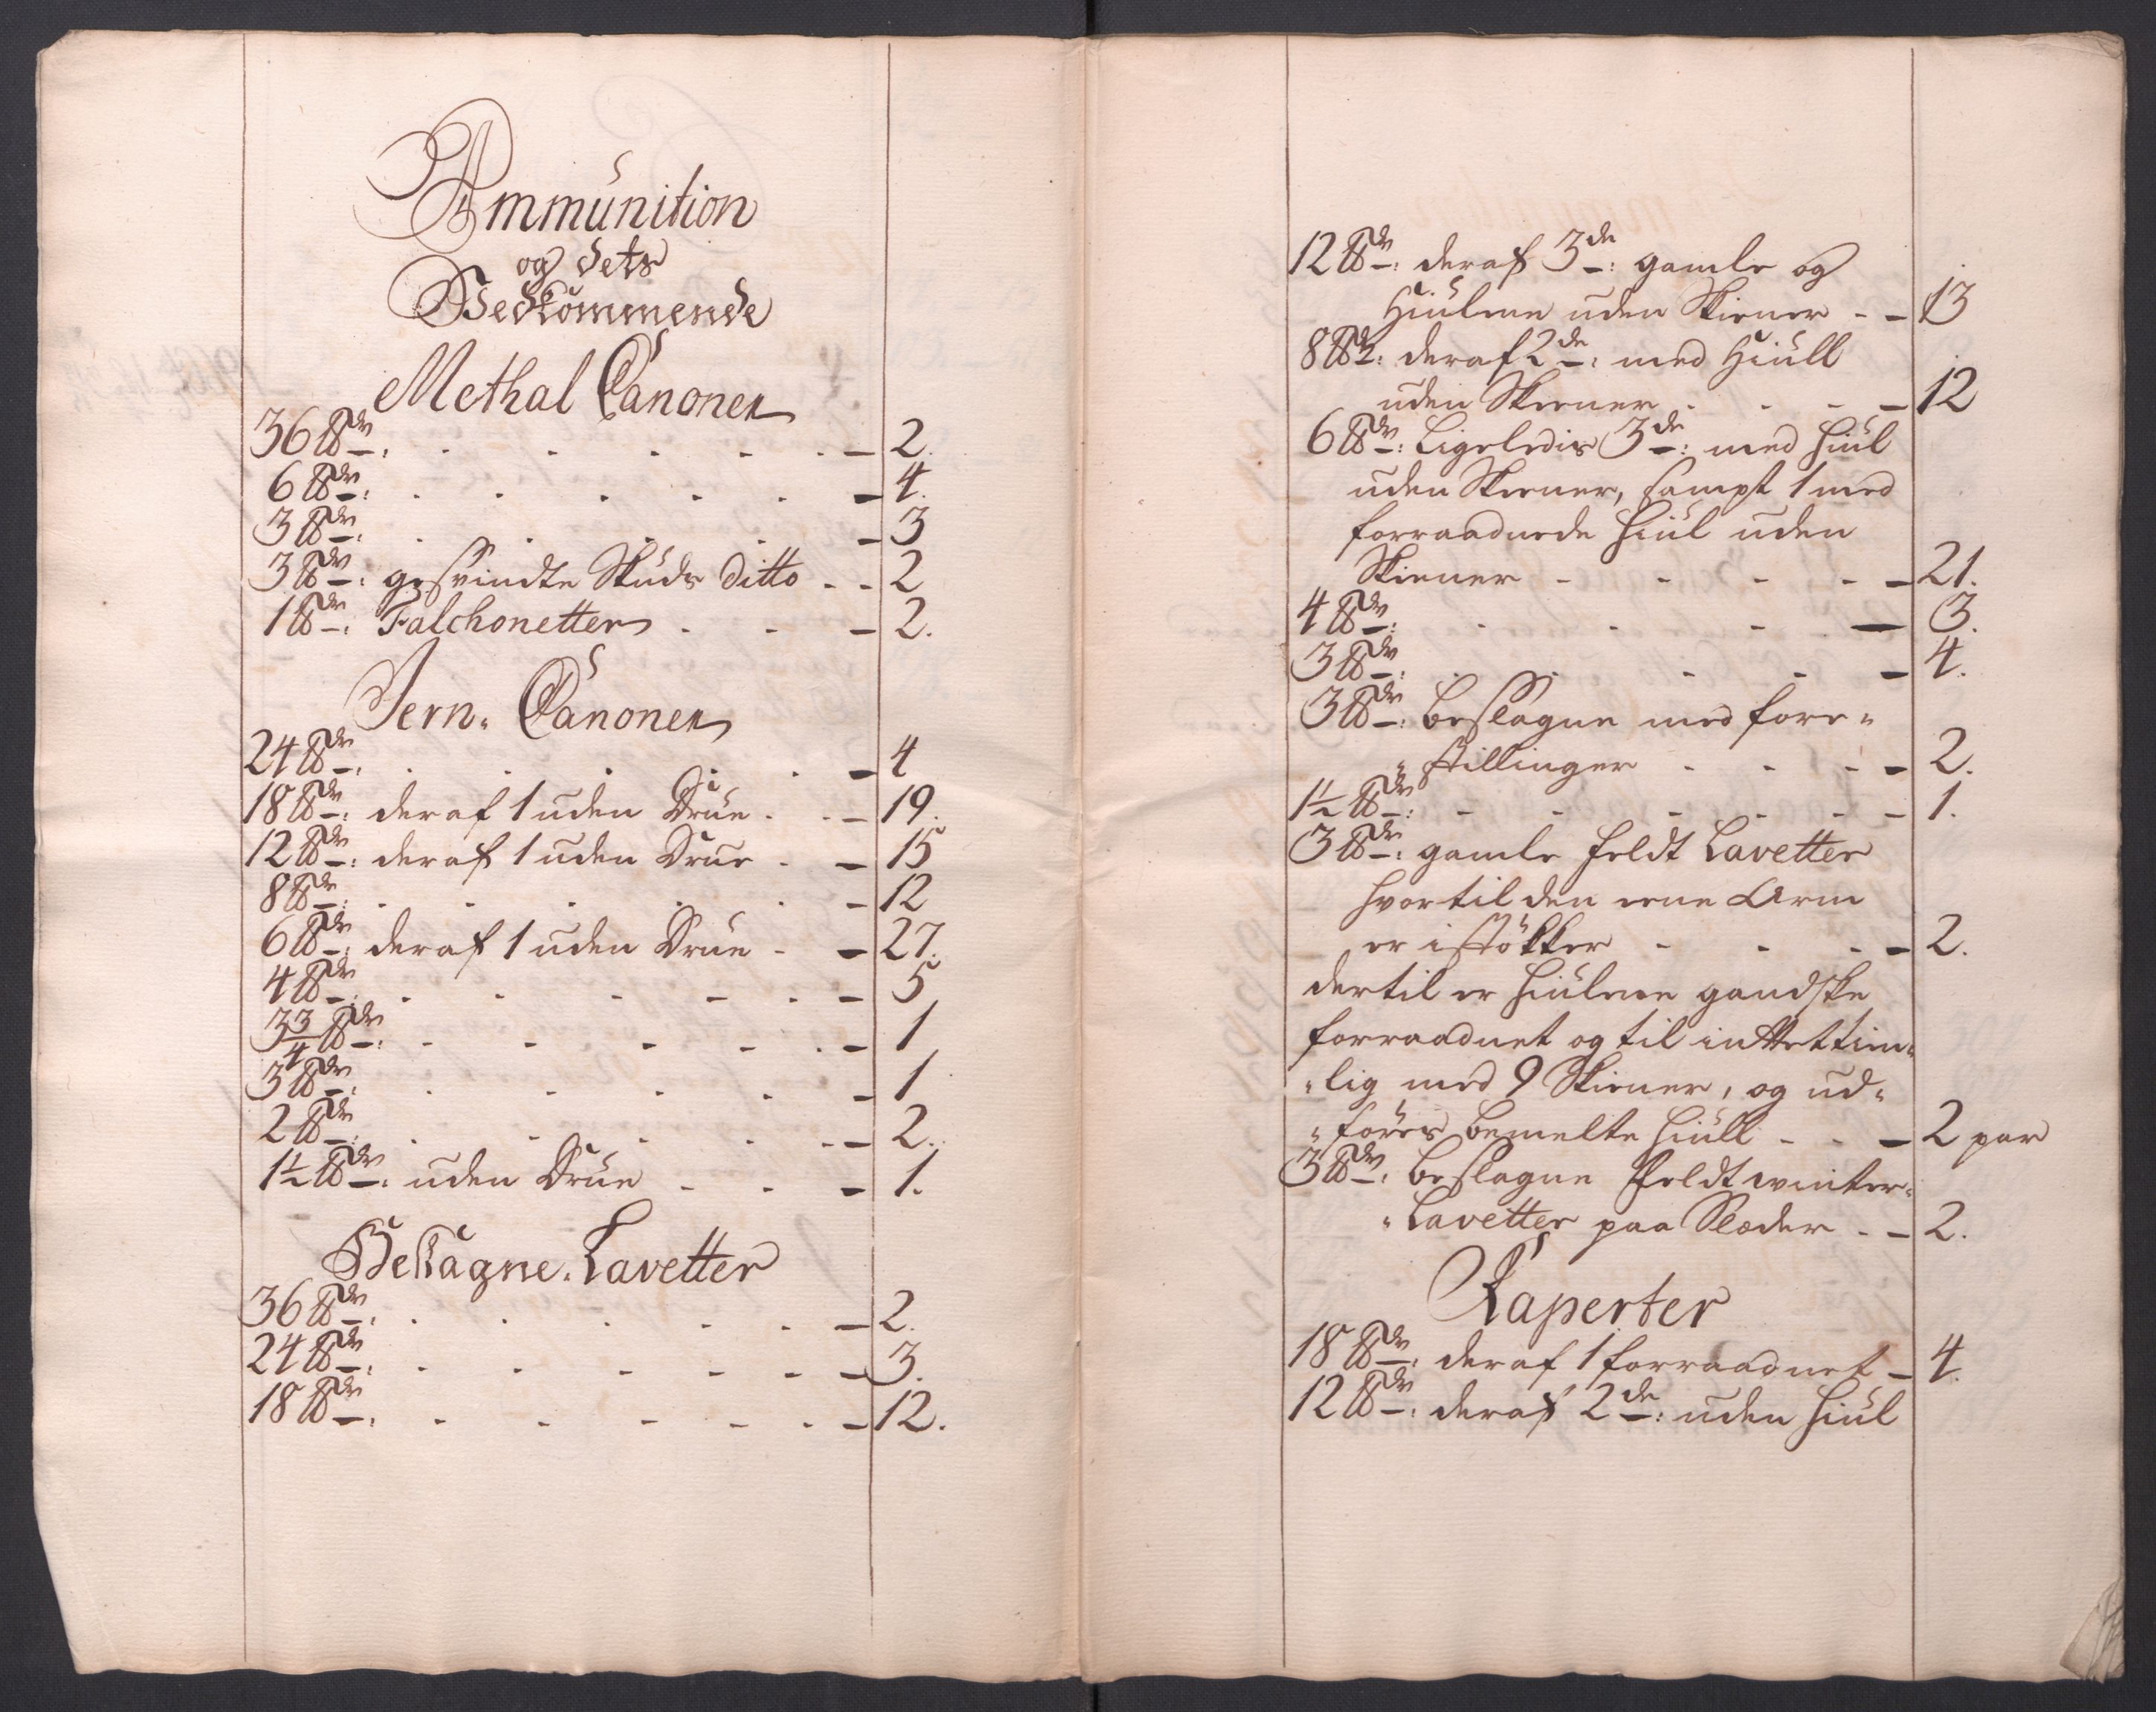 Ammunition
og dets
Vedkommende
Methal Canoner
36 ℔dr: . . . . . — 2.
6 ℔dr: . . . . . — 4.
3 ℔dr: . . . . — 3
3 ℔dr: gesvindte Skuds ditto - - 2
1 ℔dr: Falchonetter - - — 2.
Jern. Canoner
24 ℔dr: . . . . . — 4
18 ℔dr: deraf 1 uden Drue - . — 19.
12 ℔dr: deraf 1 uden Drue - — 15
8 ℔dr: . . . . . — 12
6 ℔dr: deraf 1 uden Drue - — 27.
4 ℔dr: . . . . . — 5
3 3/4 ℔dr: . . . . . — 1
3 ℔dr: . . . . — 1
2 ℔dr: . . . . . — 2.
1 1/2 ℔dr: uden Drue - - — 1.
Beslagne Lavetter
36 ℔dr: . . . . . — 2.
24 ℔dr: . . . . . — 3.
18 ℔dr: . . . . . — 12.
12 ℔dr: deraf 3de: gamle og
Hiulene uden Skiener - — 13
8 ℔dr: deraf 2de: med Hiull
uden Skiener - - - — 12
6 ℔dr: Ligeledis 3de: med Hiul
uden Skiener, sampt 1 med
forraadnede Hiul uden
Skiener - - - - — 21.
4 ℔dr: . . . — 3.
3 ℔dr: . . . . — 4.
3 ℔dr: beslagne med fore-
stillinger - - - — 2.
1 1/2 ℔dr: - - - - - — 1.
3 ℔dr: gamle feldt Lavetter
hvortil den eene Arm
er istökker - - - — 2.
dertil er Hiulene gandske
forraadnet og til intet tien-
lig med 9 Skiener, og ud-
föres bemelte Hiull - - — 2 par
3 ℔dr: beslagne feldt winter-
Lavetter paa Slæder - — 2.
Raperter
18 ℔dr: deraf 1 forraadnet — 4.
12 ℔dr: deraf 2de: uden Hiul